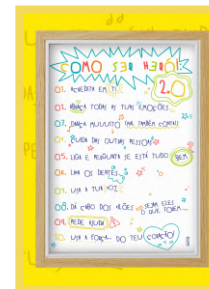 COMO SER HERÓI
2.0
01. ACREDITA EM TI
02. ABRAÇA TODAS AS TUAS EMOÇÕES
03. DANÇA MUUUITO (RIR TAMBÉM CONTA!)
04. CUIDA DAS OUTRAS PESSOAS
05. LIGA E PERGUNTA SE ESTÁ TUDO BEM
06. LAVA OS DENTES
07. USA A TUA VOZ
08. DÁ CABO DOS VILÕES SEJAM ELES
O QUE FOREM
09. PEDE AJUDA
10. USA A FORÇA DO TEU CORAÇÃO!